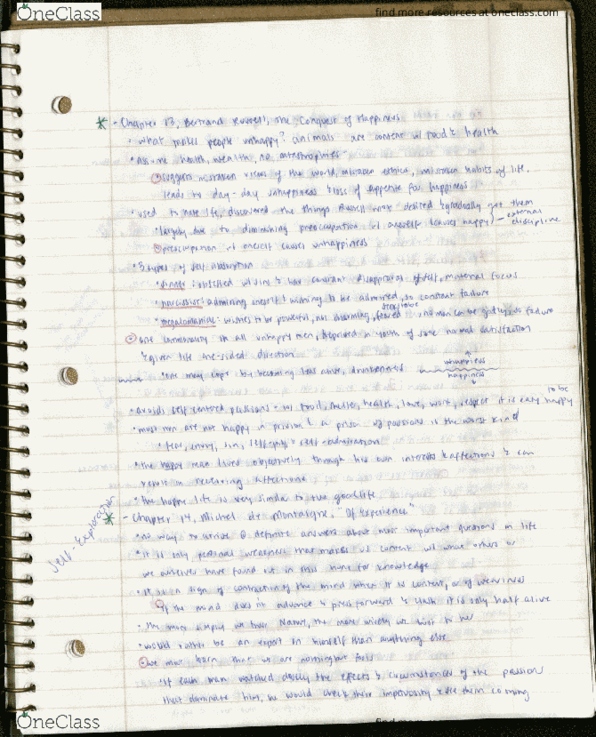 OneClass
find more resources at oneclass.com
* - Chapter 13, Bertrand Russell, The Conquest of Happiness
• What makes people unhappy? animals are content w/ food & health
• Assume health, wealth, no catastrophies
suggests mistaken views of the world, mistaken ethics, mistaken habits of life.
leads to day-day unhappiness & loss of appetite for happiness
• used to hate life, discovered the things Russell most desired & gradually got them
• largely due to diminishing preoccupation w/ oneself leaves happy → external discipline
preoccupation w/ oneself causes unhappiness
• 3 types of self absorption
• sinner: obsessed w/ sins & has constant disapproval of self, maternal focus
• narcissist: admiring oneself & wishing to be admired, so constant failure
• megalomaniac: wishes to be powerful, not charming, feared no man can be god leads to failure
one commonality in all unhappy men, deprived in youth of some normal satisfaction
• given life one-sided direction
drunkenness
unhappiness
happiness
• avoids self centred passions • w/ food, shelter, health, love, work, respect it is easy to be happy
• most men are not happy in prison & a prison of passions is the worst kind
• fear, envy, sin, self-pity & self-admiration
• the happy man lives objectively through his own interests & affections & can
receiving affections
• the happy life is very similar to the good life
Self-Exploration
* - Chapter 14, Michel de Montaigne, "Of Experience"
• no way to definite answers about most important questions in life
• it is only personal weakness that makes us content w/ what others or
we ourselves have found out in this hunt for knowledge
• it is a sign of contracting the mind when it is content, or of weariness
if the mind does not advance & press forward & clash it is only half alive
• the more simply we trust Nature, the more wisely we trust to her
• would rather be an expert in himself than anything else
we must learn that we are nothing but fools
• if each man watched closely the effects & circumstances of the passion
that dominate him, he would check their impetuosity & see them coming
OneClass
find more resources at oneclass.com